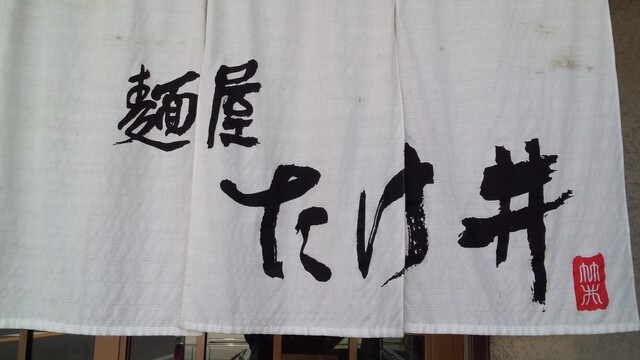 麺屋
たけ井